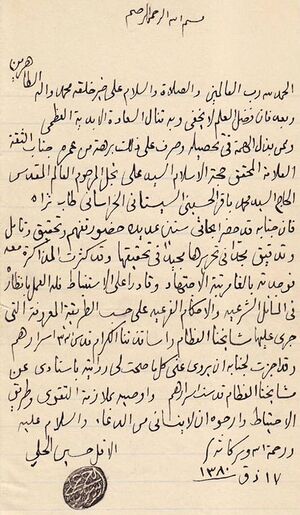 بسم الله الرحمن الرحيم
الحمد لله رب العالمين والصلاة والسلام على خير خلقه محمد واله الطاهرين
وبعد فان فضل العلم لا يخفى وبه تنال السعادة الابدية العظمى
وممن بذل الهمة في تحصيله وصرف على ذلك برهة من عمره جناب الثقة
العلامة المحقق حجة الاسلام السيد علي نجل المرحوم العالم المقدس
الحاج السيد محمد باقر الحسيني السيستاني الخراساني طاب ثراه
فان جنابه قد حضر ابحاثي سنين عديدة حضور تفهم وتحقيق وتأمل
وتدقيق مجداً في تحريرها مجيداً في تحقيقها وقد كثرت المذاكرة معه
فوجدته بالغاً رتبة الاجتهاد وقادراً على الاستنباط فله العمل بانظاره
في المسائل الشرعية والاحكام الفرعية على حسب الطريقة المعروفة التي
جرى عليها مشايخنا العظام واساتذتنا الكرام قدس الله اسرارهم
وقد اجزت لجنابه ان يروي عني كل ما صحت لي روايته باسنادي عن
مشايخنا العظام قدست اسرارهم واوصيه بملازمة التقوى وطريق
الاحتياط وارجوه ان لا ينساني من الدعاء والسلام عليه
ورحمة الله وبركاته
الاقل حسين الحلي
١٧ ذق ١٣٨٠